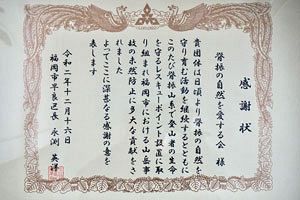 感謝状
脊振の自然を愛する会 様
貴団体は日頃より脊振の自然を
守り育む活動を継続するとともに
このたび脊振山系で登山者の生命
を守るレスキューポイント設置に取
り組まれ福岡市における山岳事
故の未然防止に多大な貢献をさ
れました
よってここに深甚なる感謝の意を
表します
令和二年十二月十六日
福岡市早良区長 永渕 英洋